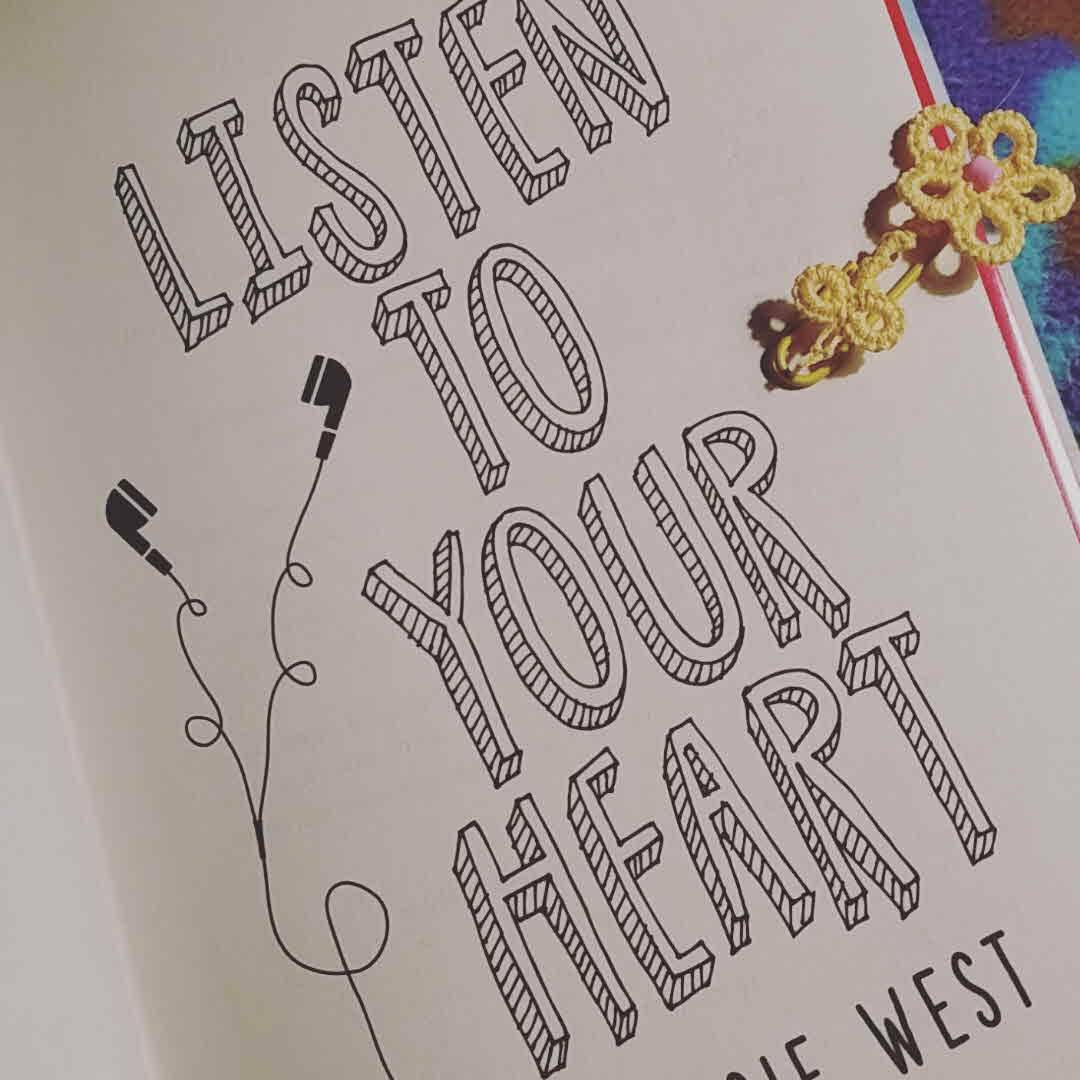 LISTEN
TO
YOUR
HEART
WEST